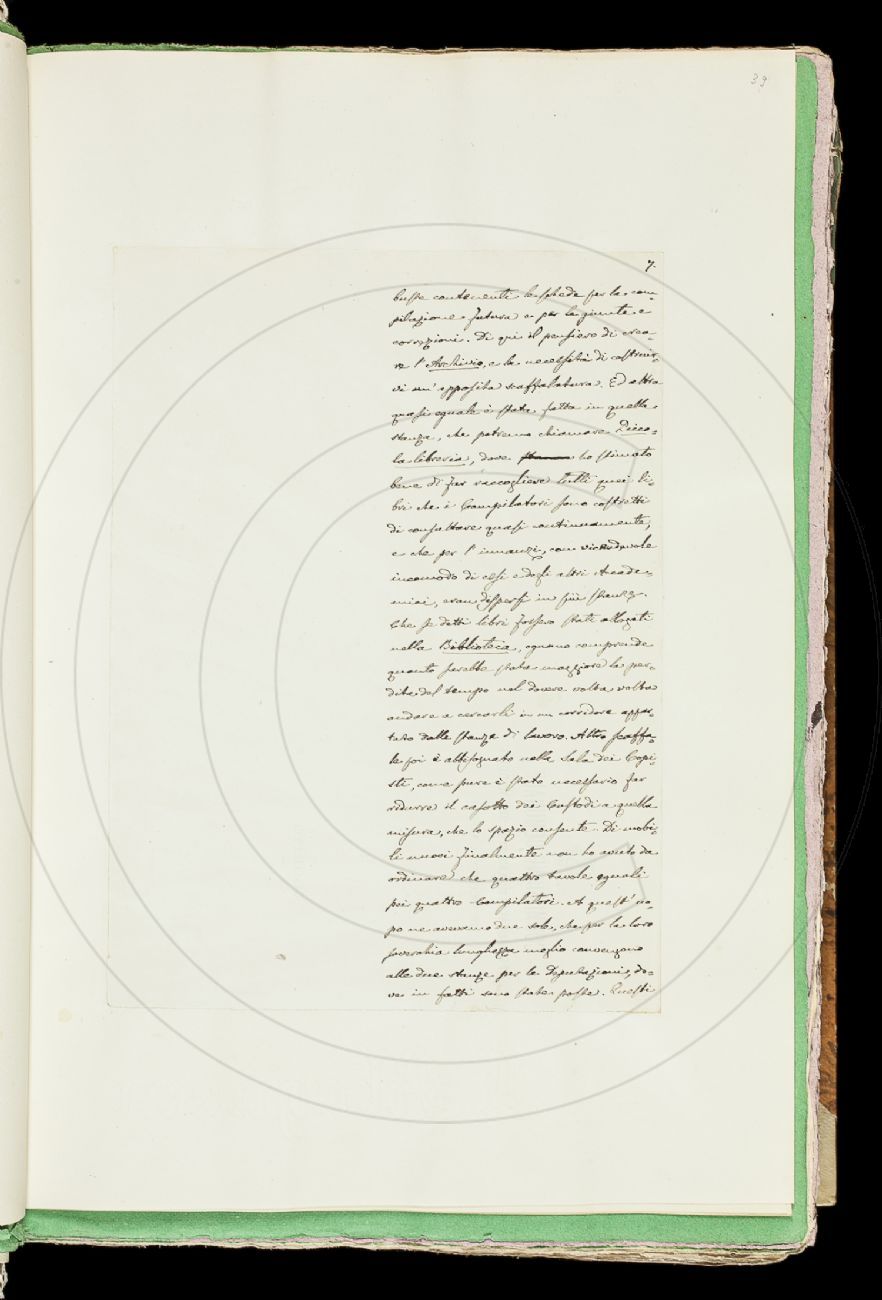 39
7.
busse contenenti le schede per la com-
pilazione futura e per le giunte e
correzioni. Di qui il pensiero di crea-
re l'Archivio, e la necessità di costruir-
vi un'apposita scaffalatura. Ed altra
quasi eguale è stata fatta in quella
stanza, che potremo chiamare Picco-
la libreria, dove ho stimato
bene di far raccogliere tutti quei li-
bri che i Compilatori sono costretti
di consultare quasi continuamente,
e che per l'innanzi, con vicendevole
incomodo di essi e degli altri Accade-
mici, eran dispersi in più stanze.
Che se detti libri fossero stati allogati
nella Biblioteca, ognuno comprende
quanto sarebbe stata maggiore la per-
dita del tempo nel dovere volta volta
andare a cercarli in un corridore appar-
tato dalle stanze di lavoro. Altro scaffa-
le poi è abbisognato nella Sala dei Copi-
sti, come pure è stato necessario far
ridurre il casotto dei Custodi a quella
misura, che lo spazio consente. Di mobi-
li nuovi finalmente non ho avuto da
ordinare che quattro tavole eguali
pei quattro Compilatori. A quest'uo-
po ne avevamo due sole, che per la loro
soverchia lunghezza meglio convengono
alle due stanze per le Deputazioni, do-
ve in fatti sono state poste. Questi